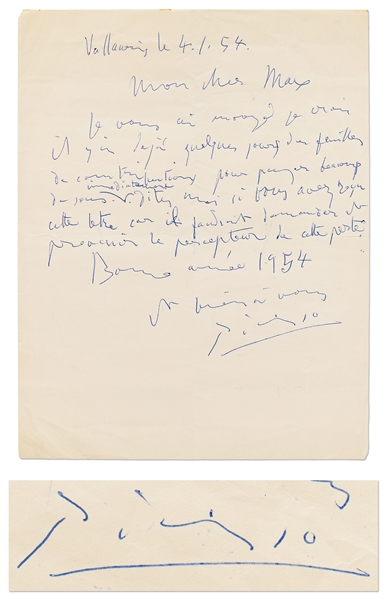 Vallauris le 4.1.54.
Mon cher Max
Je vous ai envoyé je crois
il y a déjà quelques jours des feuilles
de contributions pour payer beaucoup
immédiatement
de sous. dites moi si vous avez reçu
cette lettre car il faudrait demander et
prevenir le percepteur de cette perte
Bonne année 1954
et bien à vous
Picasso
Picasso